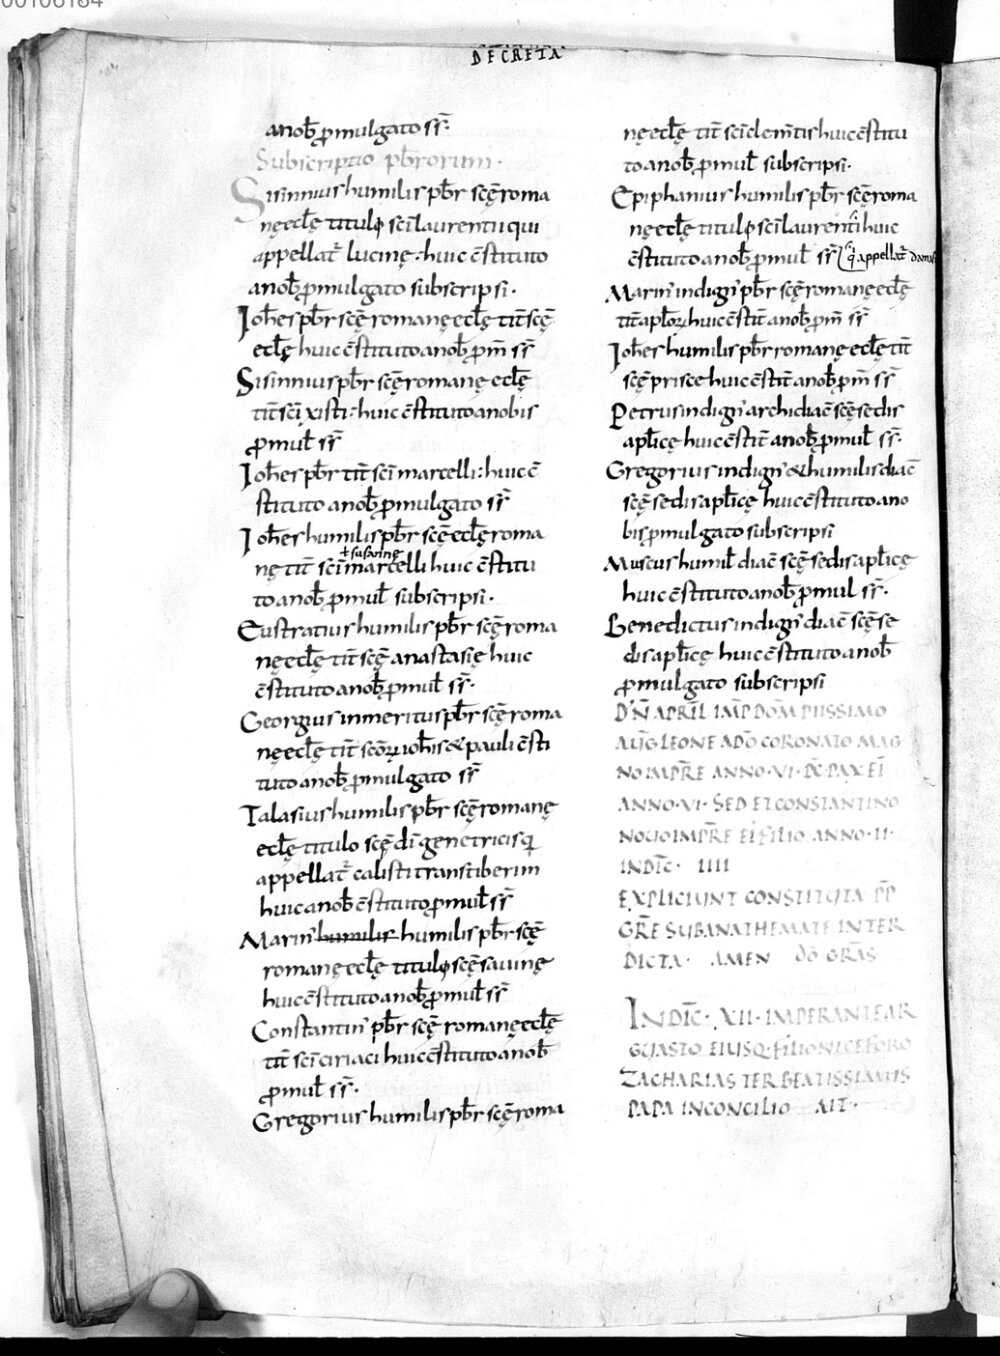 00106134
DECRETA
anoƀ ꝓmulgato s̄s̄.
Subscriptio pƀrorum.
Sisinnius humilis pƀr scę̄ roma
nę ecƚę titulo sc̄i laurentii qui
appellat̄ lucinę: huic c̄stituto
anoƀ ꝓmulgato subscripsi.
Ioħes pƀr scę̄ romanę ecƚę tit̄ scę̄
ecƚę huic c̄stituto anoƀ ꝓm̄ s̄s̄
Sisinnius pƀr scę̄ romanę ecƚę
tit̄ sc̄i xisti: huic c̄stituto anobis
ꝓmuƚ s̄s̄
Ioħes pƀr tit̄ sc̄i marcelli: huic c̄
stituto anoƀ ꝓmulgato s̄s̄
Ioħes humilis pƀr scę̄ ecƚę roma
nę tit̄ sc̄i marcelli huic c̄stitu
to anoƀ ꝓmuƚ subscripsi.
Eustratius humilis pƀr scę̄ roma
nę ecƚę tit̄ scę̄ anastasię huic
c̄stituto anoƀ ꝓmuƚ s̄s̄.
Georgius inmeritus pƀr scę̄ roma
nę ecƚę tit̄ sc̄oꝝ ioħis & pauli c̄sti
tuto anoƀ ꝓmulgato s̄s̄
Talasius humilis pƀr scę̄ romanę
ecƚę titulo scę̄ dī genetricis q
appellat̄ calisti transtiberim
huic anoƀ c̄stituto ꝓmuƚ s̄s̄
Marin' humilis humilis pƀr scę̄
romanę ecƚę titulo scę̄ savinę
huic c̄stituto anoƀ ꝓmuƚ s̄s̄
Constantin' pƀr scę̄ romanę ecƚę
tit̄ sc̄i ciriaci huic c̄stituto anoƀ
ꝓmuƚ s̄s̄.
Gregorius humilis pƀr scę̄ roma
nę ecƚę tit̄ sc̄i clem̄tis huic c̄stitu
to anoƀ ꝓmuƚ subscripsi.
Epiphanius humilis pƀr scę̄ roma
nę ecƚę titulo sc̄i laurenti huic
c̄stituto anoƀ ꝓmuƚ s̄s̄ q appellat̄
Marin' indign' pƀr scę̄ romanę ecƚę
tit̄ apƚoꝝ huic c̄stit̄ anoƀ ꝓm̄ s̄s̄
Ioħes humilis pƀr romanę ecƚę tit̄
scę̄ prisce huic c̄stit̄ anoƀ ꝓm̄ s̄s̄
Petrus indign' archidiac̄ scę̄ sedis
apƚicę huic c̄stit̄ anoƀ ꝓmuƚ s̄s̄.
Gregorius indign' & humilis diac̄
scę̄ sedis apƚicę huic c̄stituto ano
bis ꝓmulgato subscripsi
Muscus humiƚ diac̄ scę̄ sedis apƚicę
huic c̄stituto anoƀ ꝓmul s̄s̄.
Benedictus indign' diac̄ scę̄ se
dis apƚicę huic c̄stituto anoƀ
ꝓmulgato subscripsi
DN̄ APRIL IMP̄ DOM̄ PIISSIMO
AUG̅ LEONE ADŌ CORONATO MAG
NO IMPRE ANNO·VI· PC̄ PAX EĪ
ANNO·VI· SED ET CONSTANTINO
NOUO IMPRE EĪ FILIO ANNO·II·
INDIC̄· IIII
EXPLICIUNT CONSTITUTA PP̄
GRE SUB ANATHEMATE INTER
DICTA· AMEN DŌ GRĀS
INDIC̄· XII· IMPERANTE AR
GUASTO EIUSQ· FILIO NICEFORO
ZACHARIAS TER BEATISSIMUS
PAPA IN CONCILIO AIT·